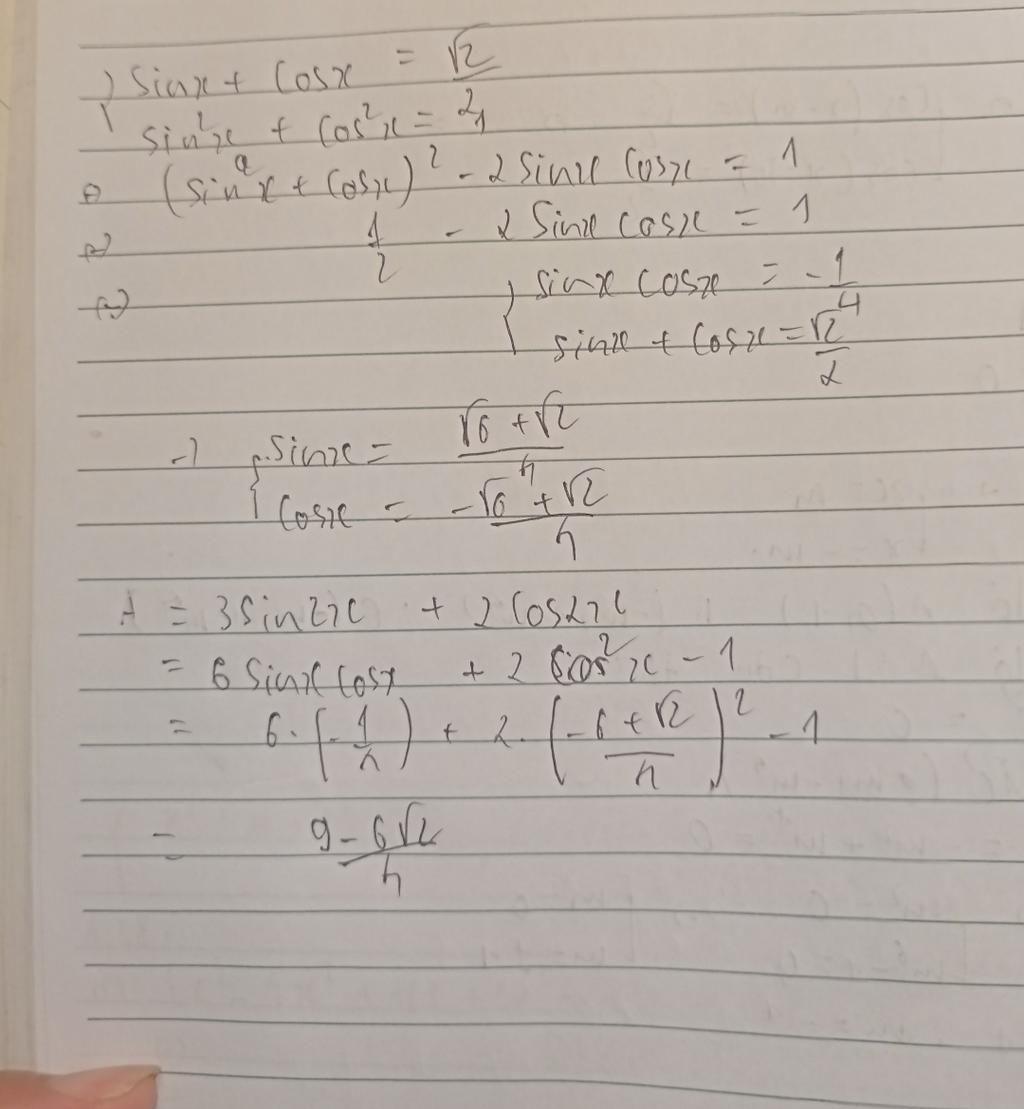 { sinx + cosx = √2/2
sin²x + cos²x = 1
⇔ (sinx + cosx)² - 2sinx cosx = 1
⇔ 1/2 - 2sinx cosx = 1
⇔ { sinx cosx = -1/4
sinx + cosx = √2/2
→ { sinx = (√6 + √2)/4
cosx = (-√6 + √2)/4
A = 3sin2x + 2cos2x
= 6sinx cosx + 2cos²x - 1
= 6.(-1/4) + 2.((-6 + √2)/4)² - 1
= (9 - 6√2)/4